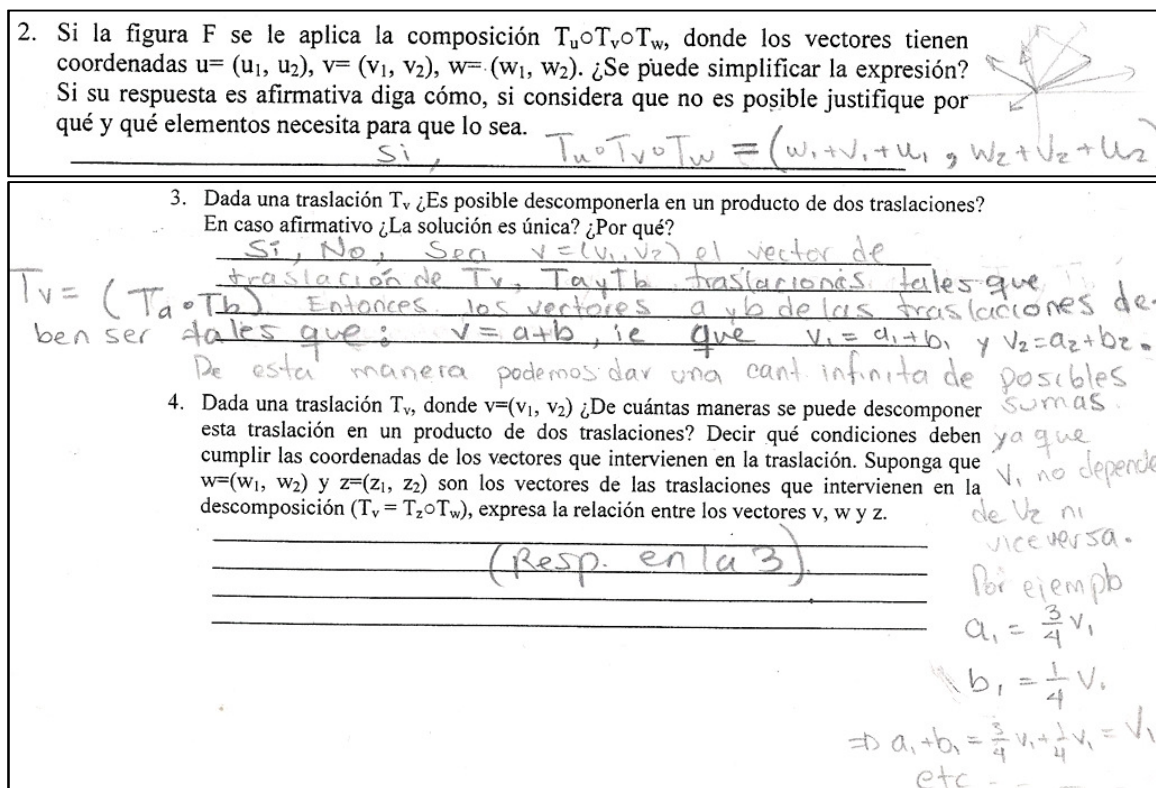 2. Si la figura F se le aplica la composición TᵤoTᵥoT_w, donde los vectores tienen
coordenadas u= (u₁, u₂), v= (v₁, v₂), w= (w₁, w₂). ¿Se puede simplificar la expresión?
Si su respuesta es afirmativa diga cómo, si considera que no es posible justifique por
qué y qué elementos necesita para que lo sea.
Si, Tᵤ∘Tᵥ∘T_w = (w₁+v₁+u₁, w₂+v₂+u₂)
3. Dada una traslación Tᵥ ¿Es posible descomponerla en un producto de dos traslaciones?
En caso afirmativo ¿La solución es única? ¿Por qué?
Sí, No, Sea v=(v₁, v₂) el vector de
traslación de Tᵥ, Ta y Tb traslaciones tales que
Tᵥ = (Ta∘Tb) Entonces los vectores a y b de las traslaciones de-
ben ser tales que: v = a+b, ie que v₁ = a₁+b₁ y v₂=a₂+b₂.
De esta manera podemos dar una cant. infinita de posibles
sumas.
ya que
v₁ no depende
de v₂ ni
viceversa.
Por ejemplo
a₁ = 3/4 v₁
b₁ = 1/4 v₁
⇒ a₁+b₁ = 3/4 v₁ + 1/4 v₁ = v₁
etc - - -
4. Dada una traslación Tᵥ, donde v=(v₁, v₂) ¿De cuántas maneras se puede descomponer
esta traslación en un producto de dos traslaciones? Decir qué condiciones deben
cumplir las coordenadas de los vectores que intervienen en la traslación. Suponga que
w=(w₁, w₂) y z=(z₁, z₂) son los vectores de las traslaciones que intervienen en la
descomposición (Tᵥ = T_z∘T_w), expresa la relación entre los vectores v, w y z.
(Resp. en la 3)